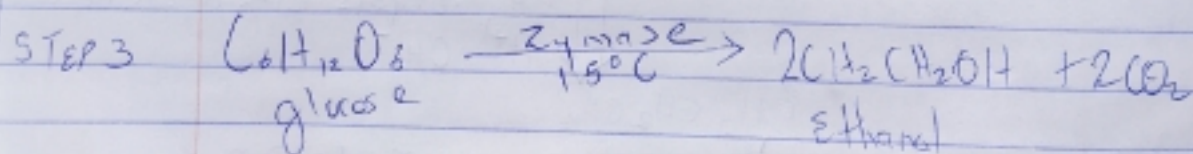 STEP 3 C6H12O6 Zymase 15°C → 2CH2CH2OH + 2CO2
glucose Ethanol